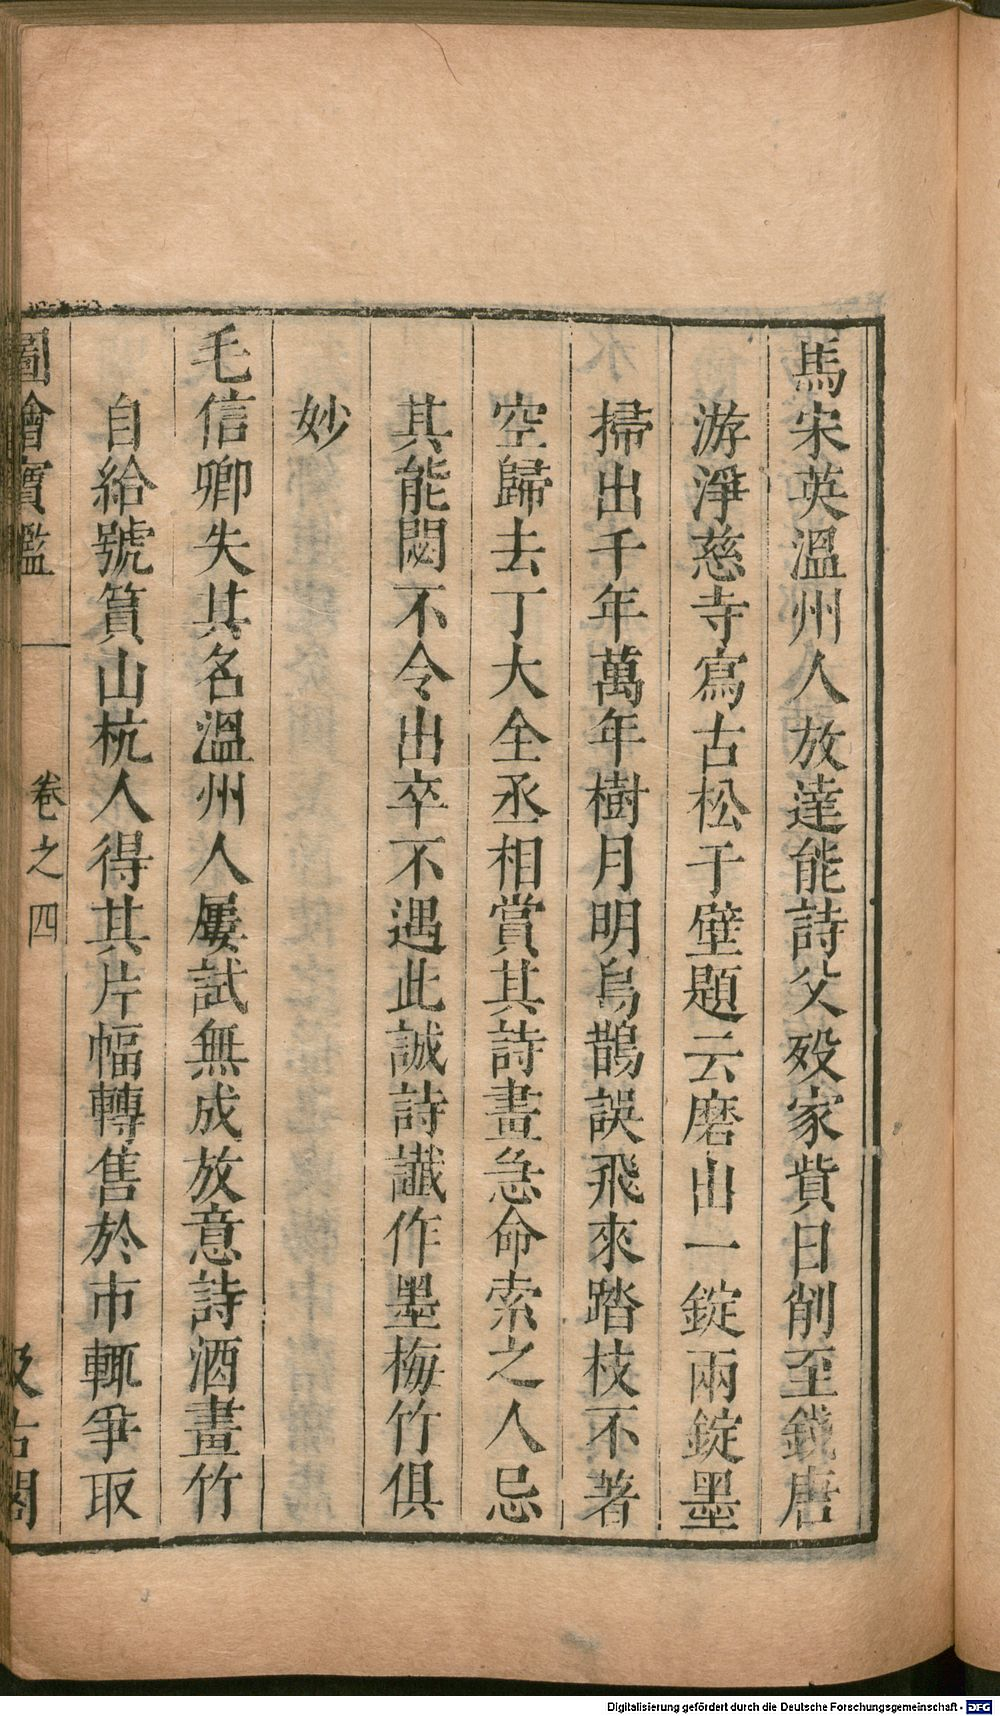 馬宋英溫州人放達能詩父歿家貲日削至錢唐
游淨慈寺寫古松于壁題云磨出一錠兩錠墨
掃出千年萬年樹月明烏鵲誤飛來踏枝不著
空歸去丁大全丞相賞其詩畫急命索之人忌
其能閟不令出卒不遇此誠詩讖作墨梅竹俱
妙
毛信卿失其名溫州人屢試無成放意詩酒畫竹
自給號篔山杭人得其片幅轉售於市輒爭取
圖繪寶鑑 卷之四 汲古閣
Digitalisierung gefördert durch die Deutsche Forschungsgemeinschaft - DFG